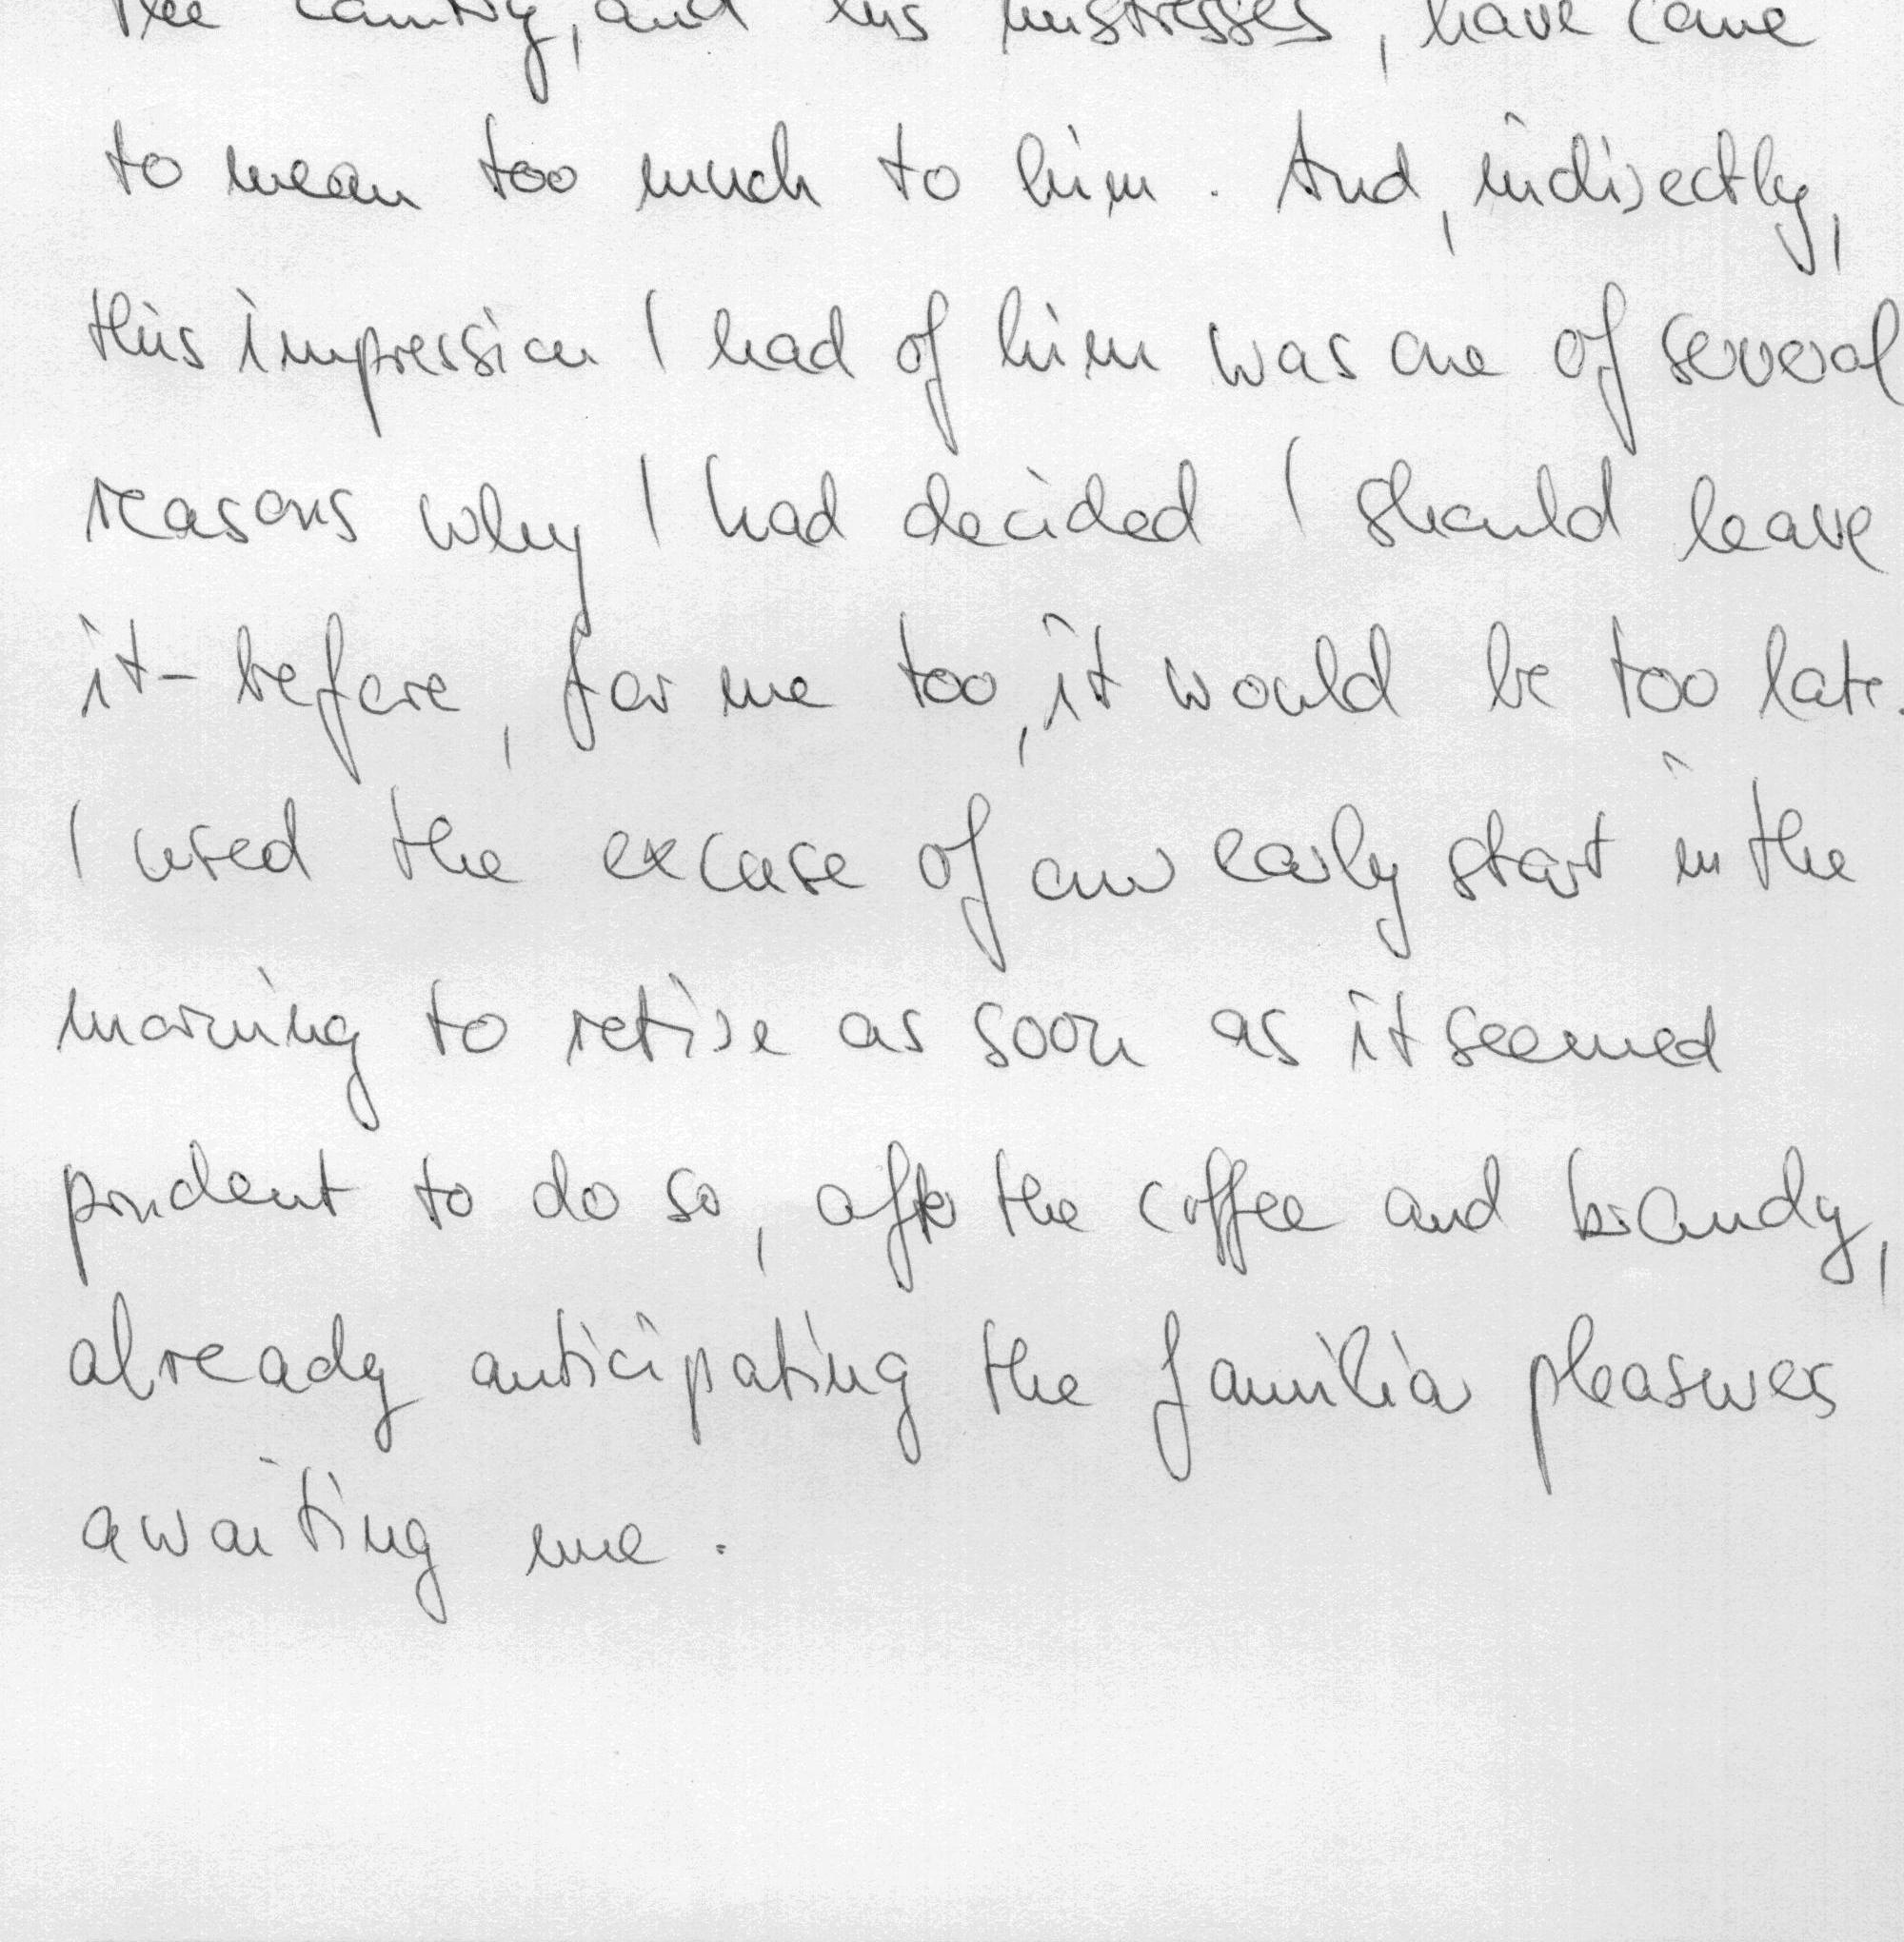 the country, and his mistresses, have come
to mean too much to him. And, indirectly,
this impression I had of him was one of several
reasons why I had decided I should leave
it- before, for me too, it would be too late.
I used the excuse of an early start in the
morning to retire as soon as it seemed
prudent to do so, after the coffee and brandy,
already anticipating the familiar pleasures
awaiting me.